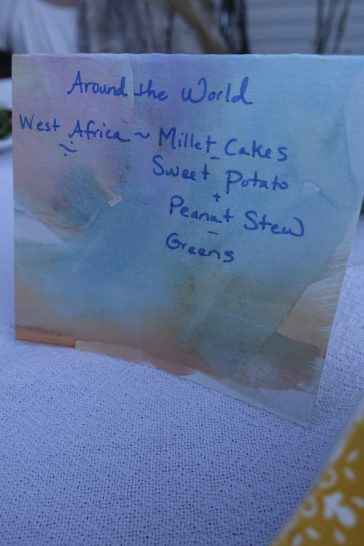 Around the World
West Africa ~ Millet Cakes
~
-
Sweet Potato
+
Peanut Stew
-
Greens